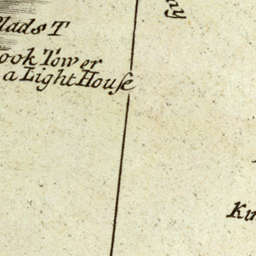 lads T
ook Tower
a Light Houſe
ay
Ku